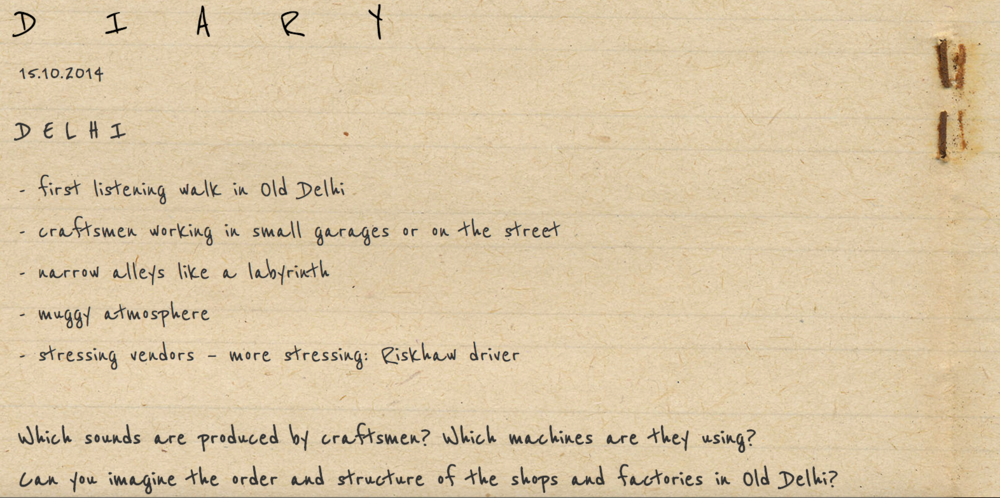 D I A R Y
15.10.2014
D E L H I
- first listening walk in Old Delhi
- craftsmen working in small garages or on the street
- narrow alleys like a labyrinth
- muggy atmosphere
- stressing vendors – more stressing: Riskhaw driver
Which sounds are produced by craftsmen? Which machines are they using?
Can you imagine the order and structure of the shops and factories in Old Delhi?